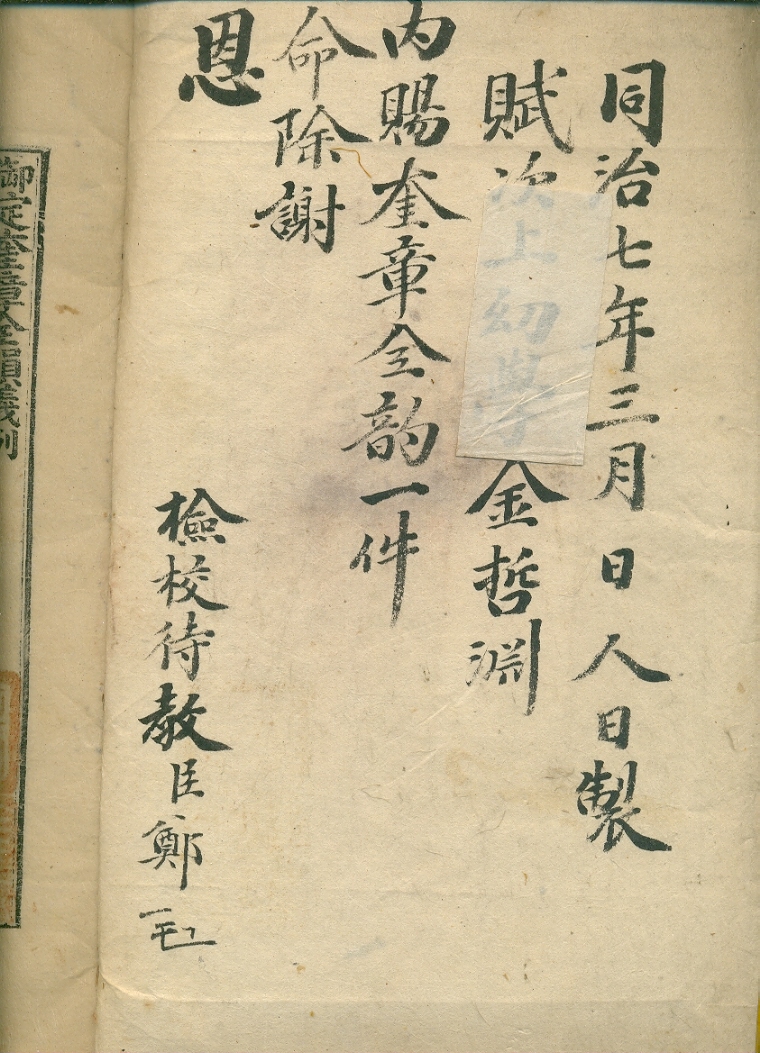 同治七年三月 日人日製
賦次上幼學金哲淵
內賜奎章全韵一件
命除謝
恩
檢校待教臣鄭
御定奎章全韻義例